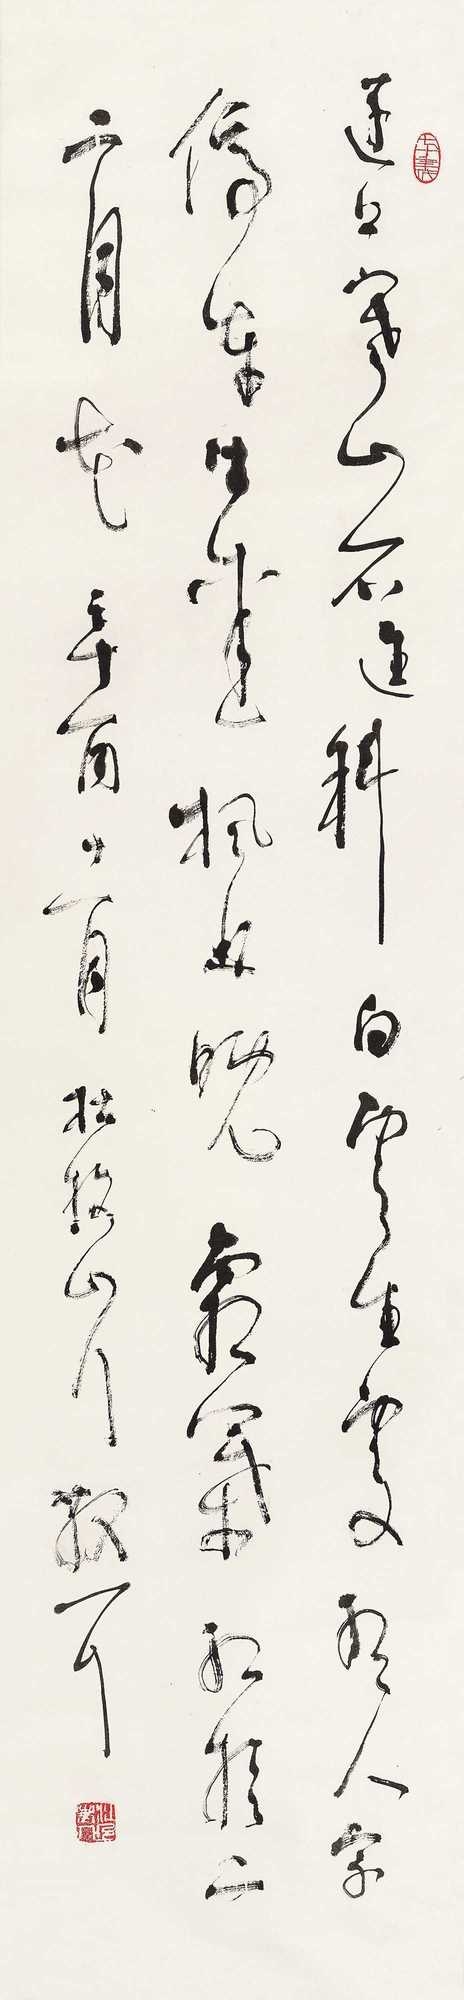 遠上寒山石逕斜白雲生處有人家
停車坐愛楓林晚霜葉紅於二
二月花 辛酉十一月 杜牧山行